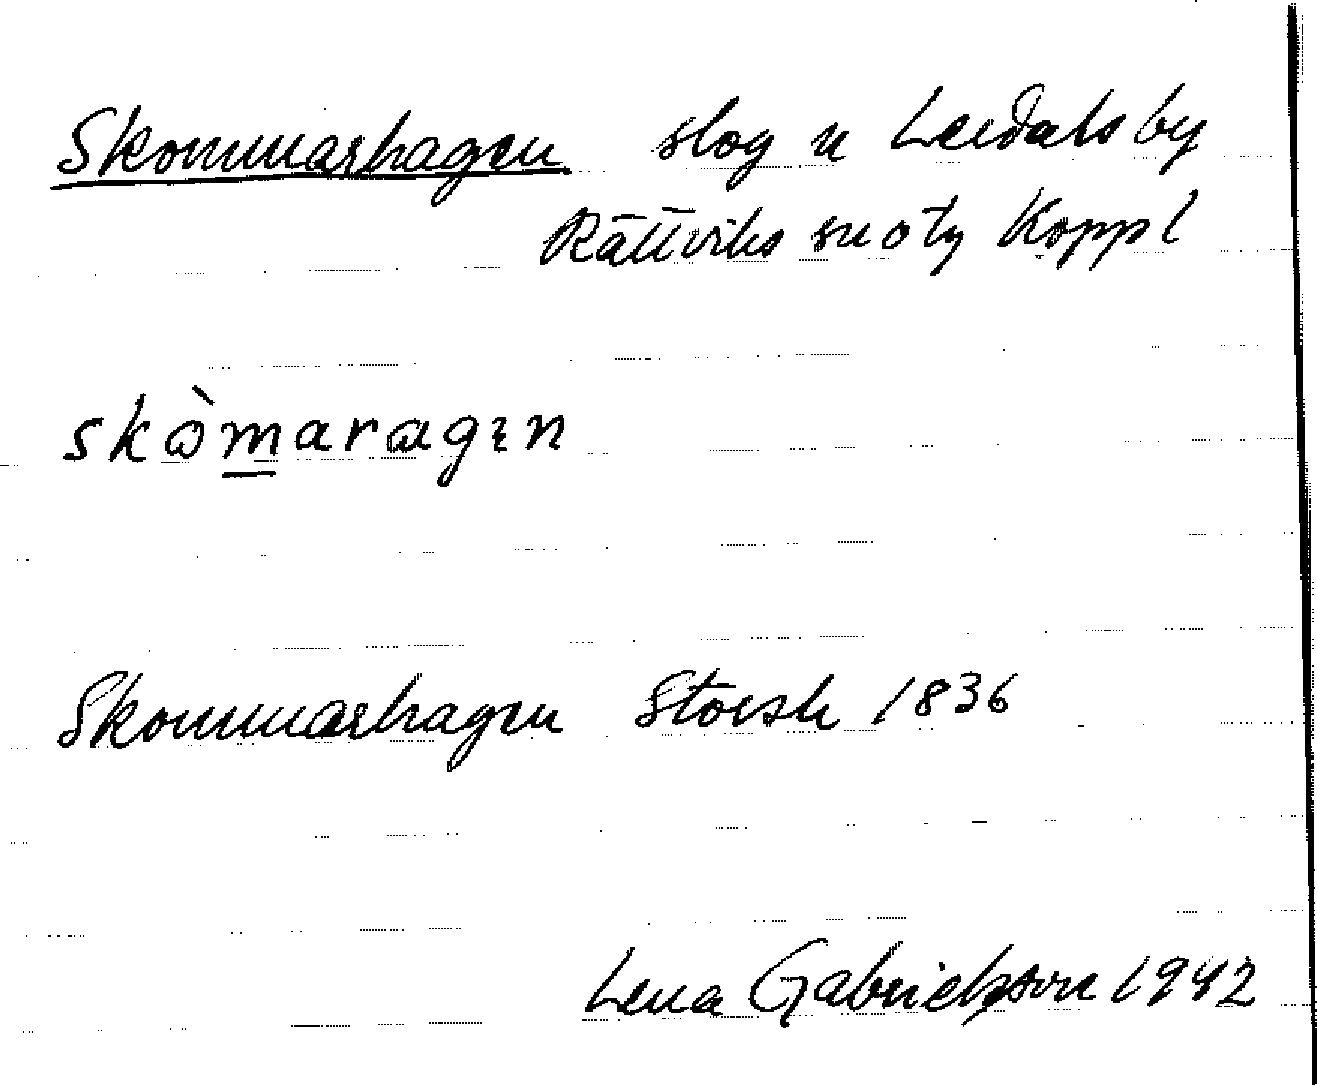 Skommarhagen slog n Lerdals by
Rättviks sn o tg Koppl
skòmaragɛn
Skommarhagen Storsk 1836
Lena Gabrielsson 1942